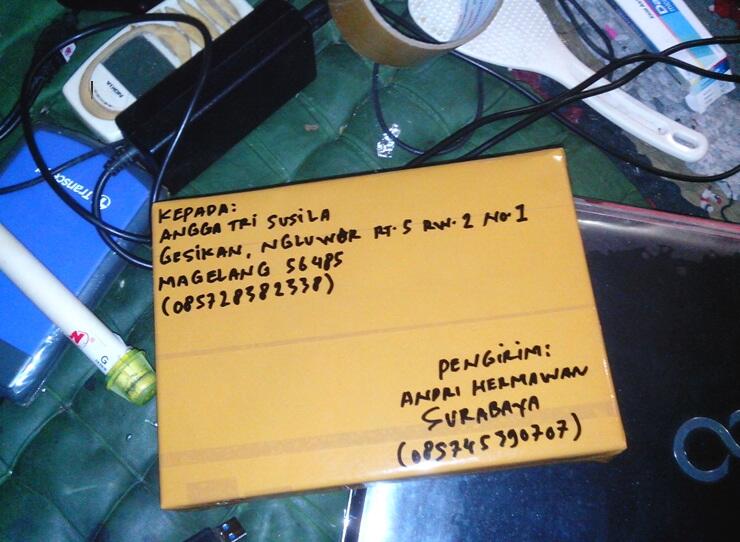 KEPADA:
ANGGA TRI SUSILA
GESIKAN, NGLUWAR RT. 5 RW. 2 No. 1
MAGELANG 56485
(085728382338)
PENGIRIM:
ANDRI HERMAWAN
SURABAYA
(085745390707)
NOKIA
Transc
N
G